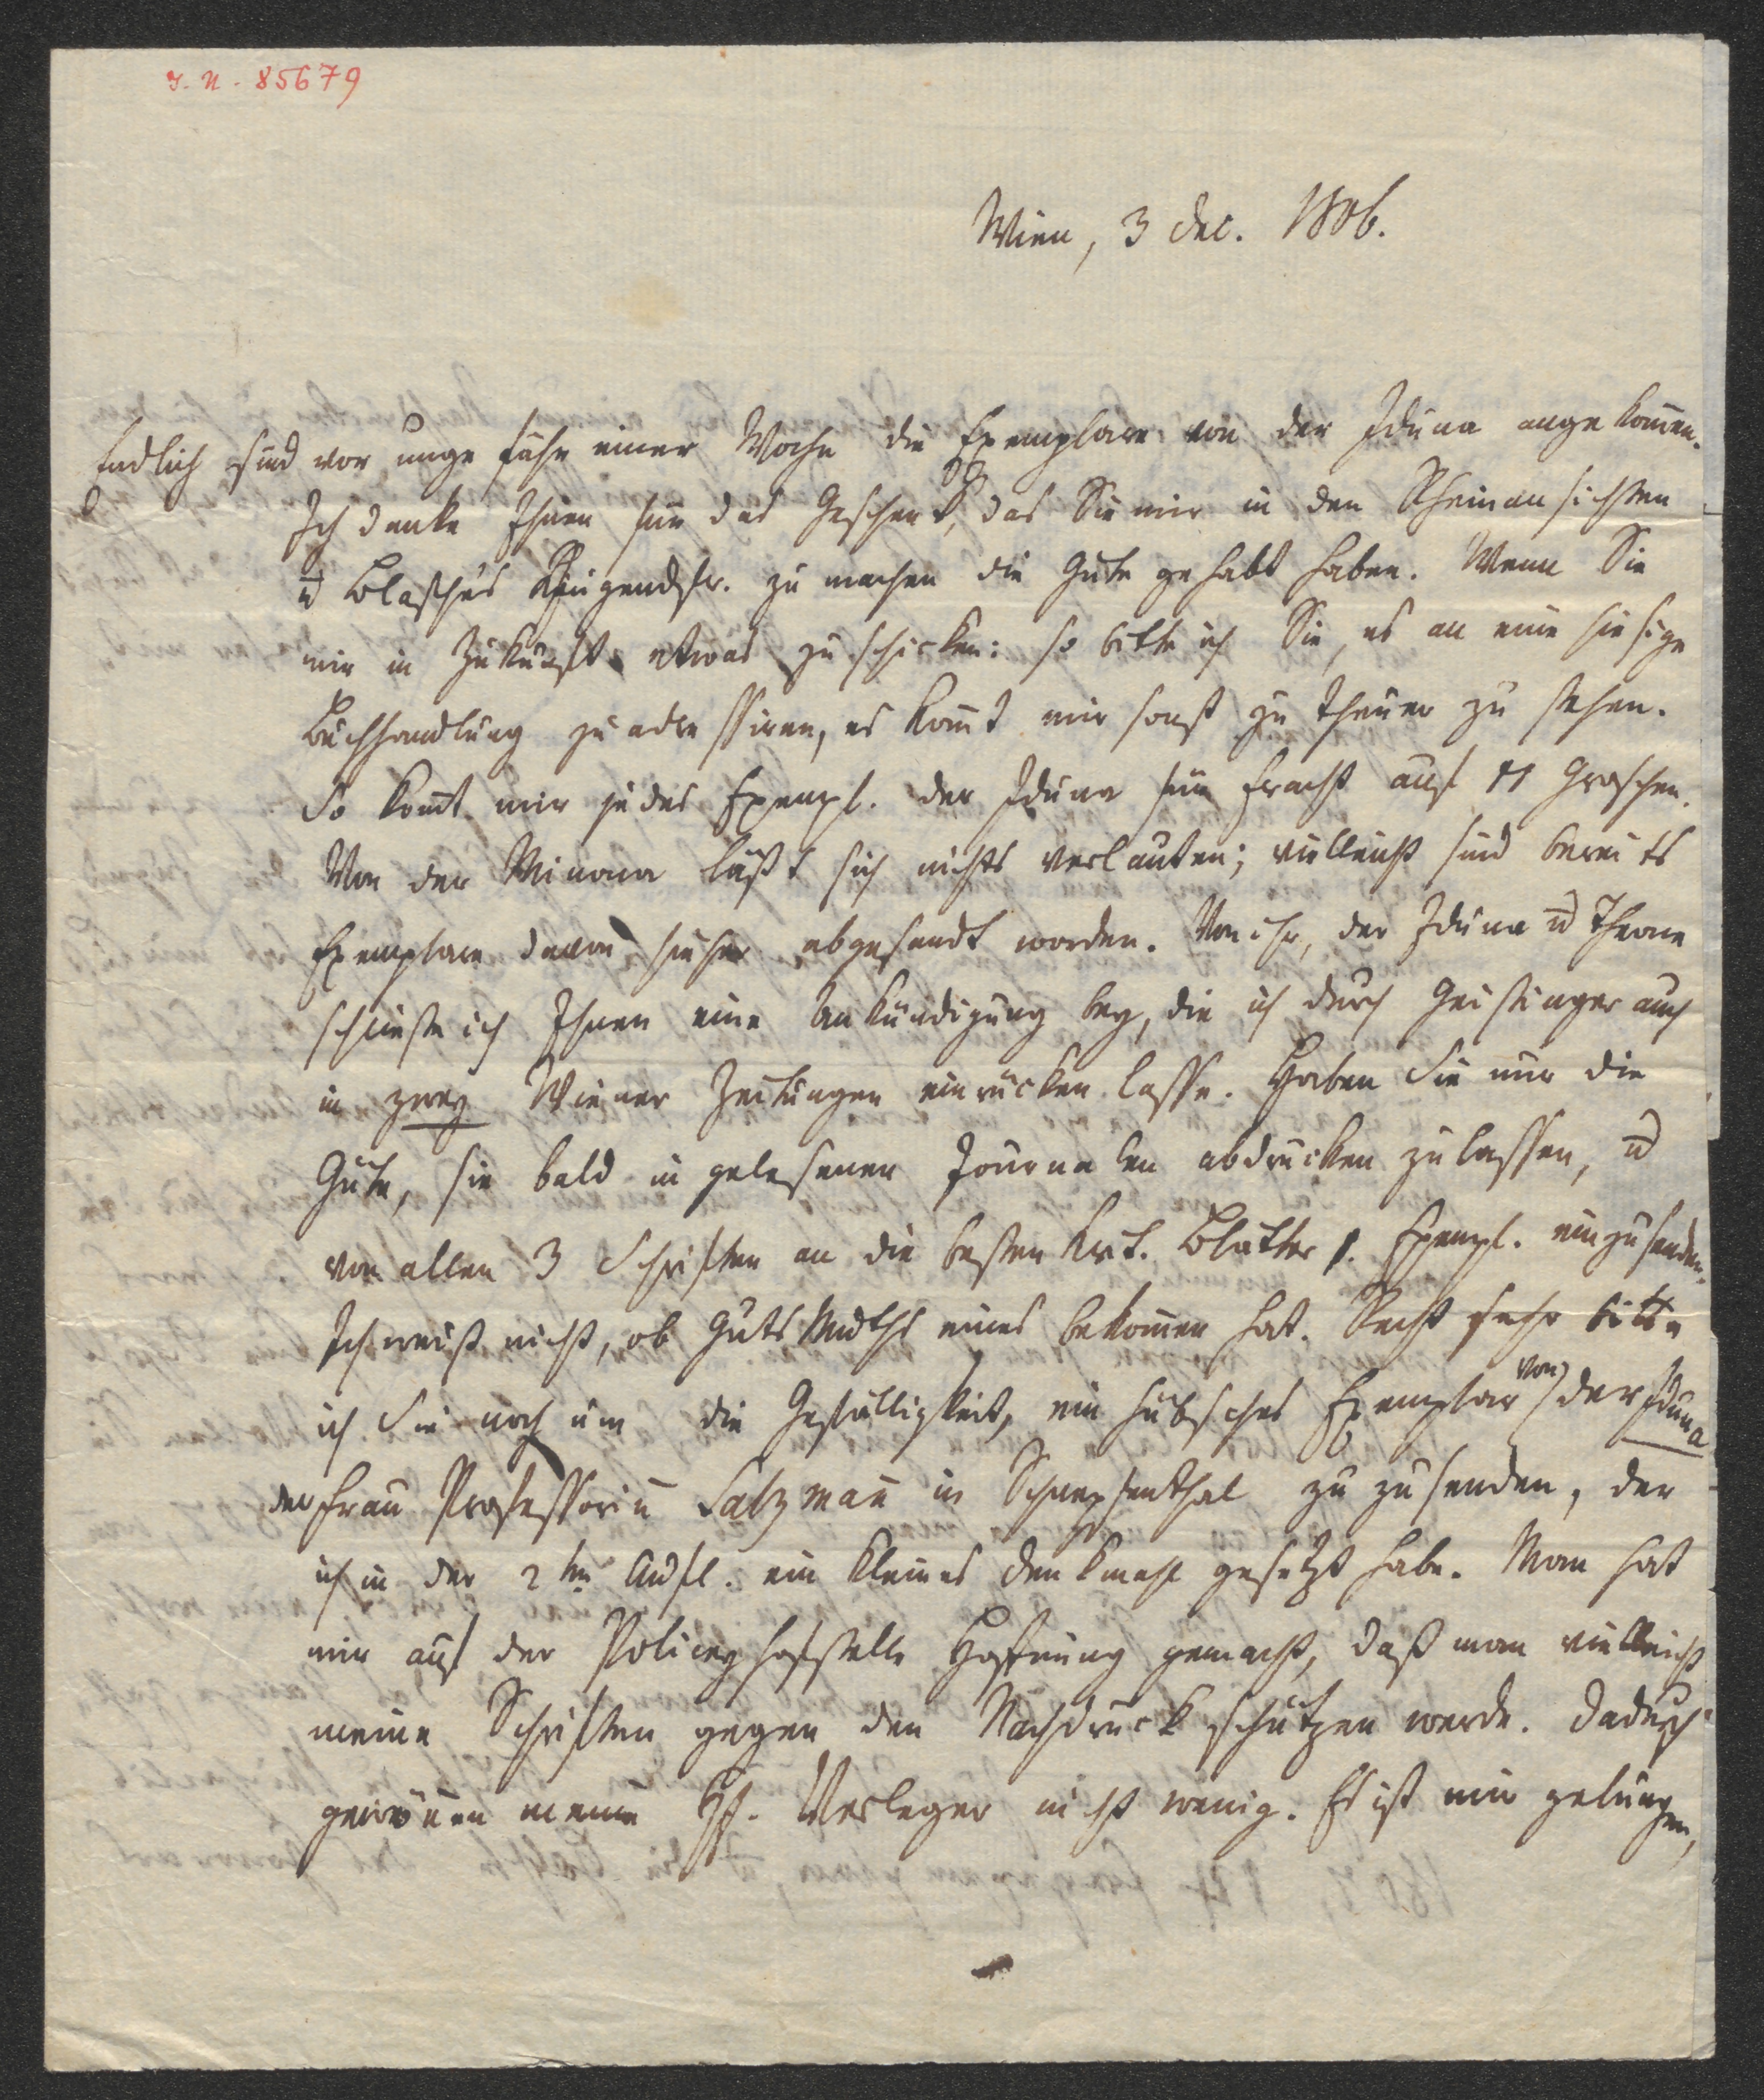 I. N. 85679
Wien, 3 Dec. 1806.
Endlich sind vor ungefähr einer Woche die Exemplare von der Iduna angekom̄en.
Ich danke Ihnen für das Geschenk, das Sie mir in den Rheinansichten
u Blasche's zu machen die Güte gehabt haben. Wenn Sie
mir in Zukunft etwas zu schicken: so bitte ich Sie, es an eine hiesige
Buchhandlung zu adressiren, es kom̄t mir sonst zu theuer zu stehen.
So kom̄t mir jedes Exempl. der Iduna für Fracht auf 11 Groschen.
Von der Minona läßt sich nichts verlauten; vielleicht sind bereits
Exemplare davon hieher abgesandt worden. Von ihr, der Iduna u Theone
schließe ich Ihnen eine Ankündigung bey, die ich durch Geistinger auch
in zwey Wiener Zeitungen einrücken lasse. Haben Sie nur die
Güte, sie bald in gelesenen Journalen abdrucken zu lassen, u
von allen 3 Schriften an die besten krit. Blätter 1. Exempl. einzusenden.
Ich weiß nicht, ob GutsMuths eines bekom̄en hat. Recht sehr bitte
ich Sie noch um die Gefälligkeit, ein hübsches Exemplar von der Iduna
der Frau Professorin̄ Salzman̄ in Schnepfenthal zuzusenden, der
ich in der 2ten Aufl. ein kleines Denkmahl gesetzt habe. Man hat
mir auf der Policeyhofstelle Hoffnung gemacht, daß man vielleicht
meine Schriften gegen den Nachdruck schützen werde. Dadurch
gewön̄en meine HH. Verleger nicht wenig. Es ist mir gelungen,